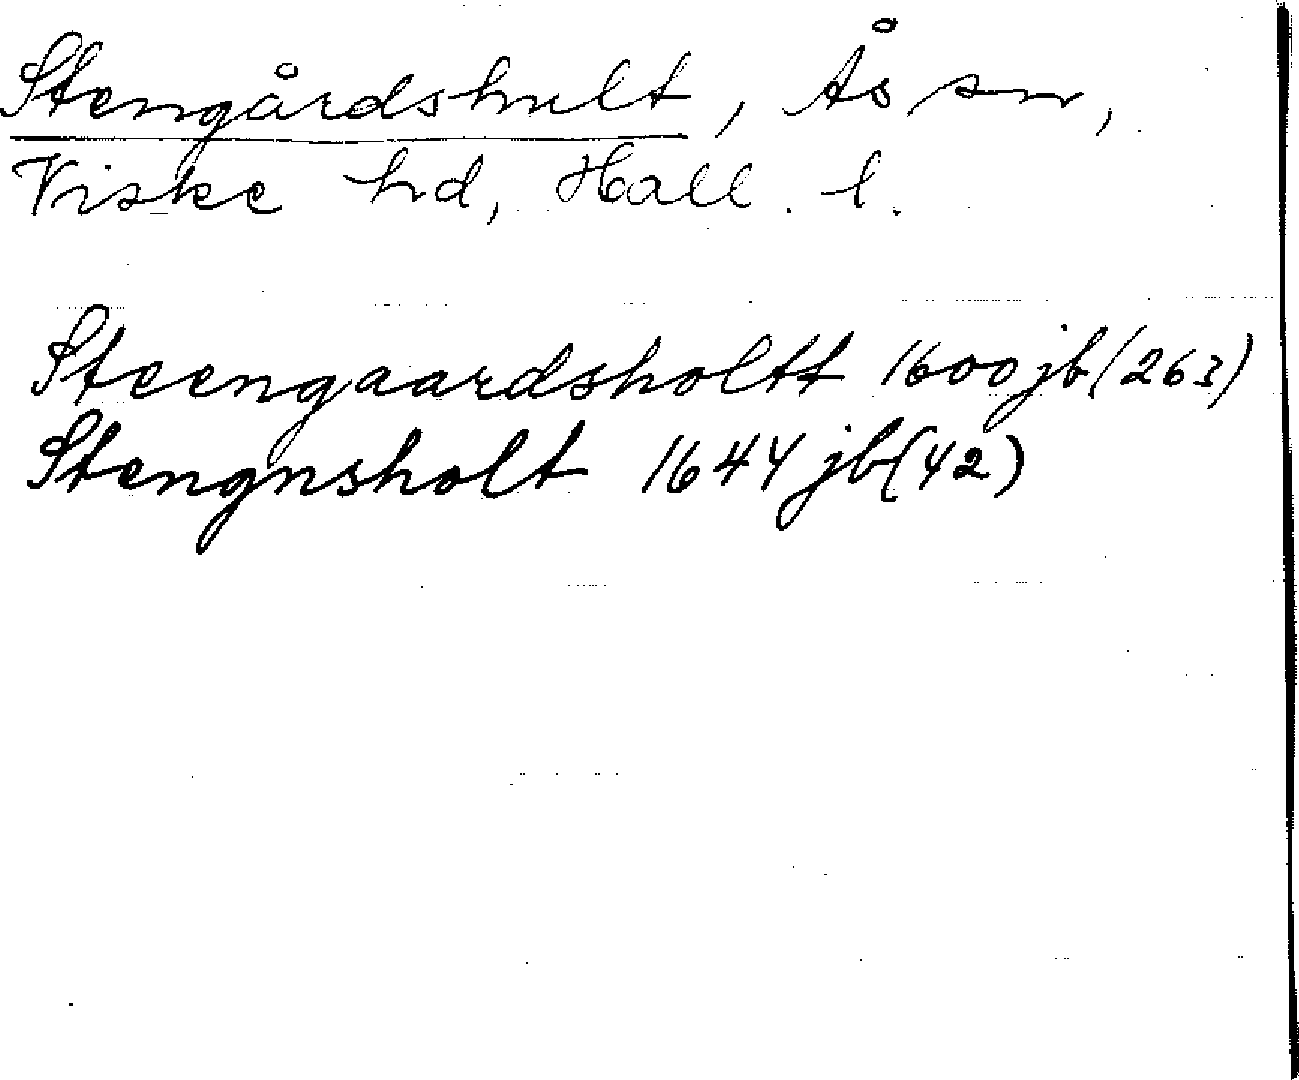 Stengårdshult, Ås sn,
Viske hd, Hall. l.
Steengaardsholtt 1600 jb (263)
Stengnsholt 1644 jb (42)